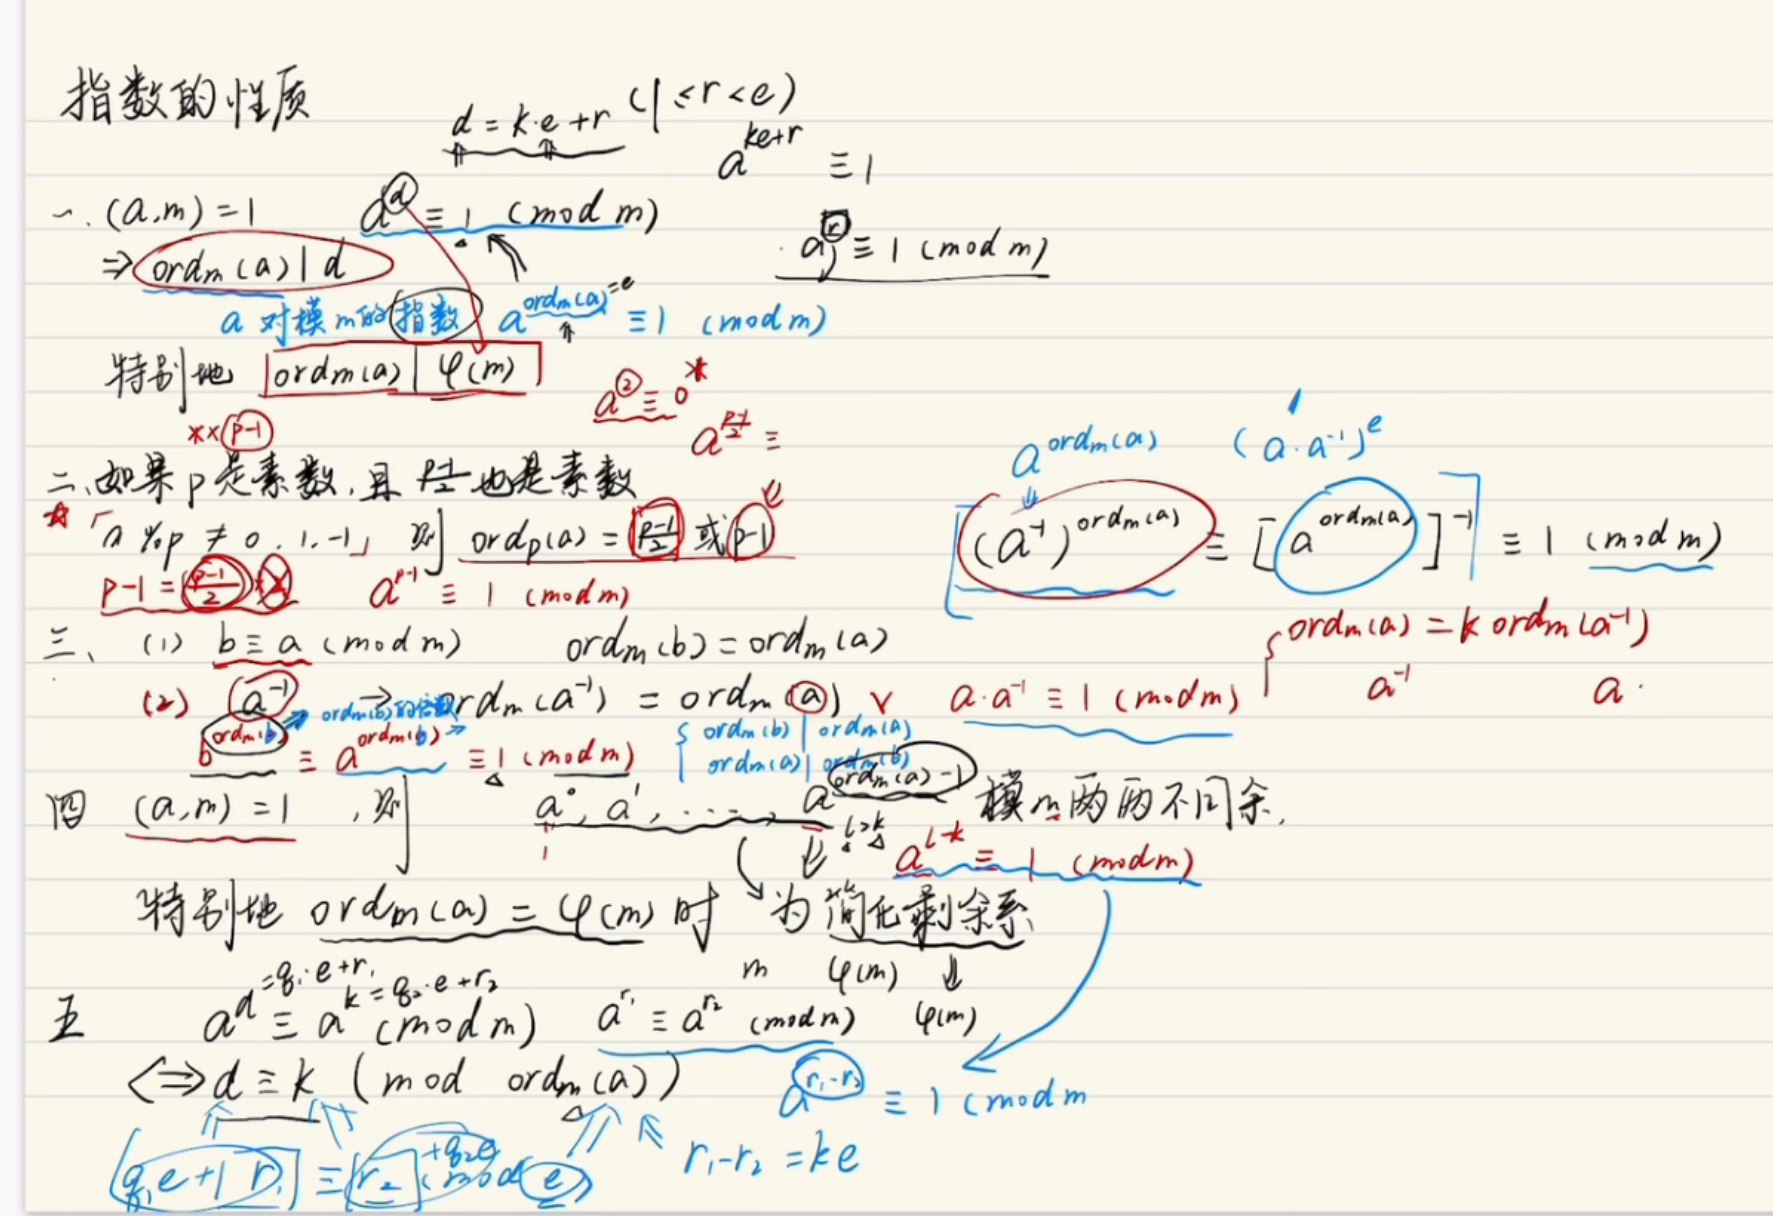 指数的性质
d = k·e + r (1 ≤ r < e)
a^{ke+r} ≡ 1
一. (a,m) = 1 a^d ≡ 1 (mod m)
a^r ≡ 1 (mod m)
⇒ ord_m(a) | d
a 对模m的指数 a^{ord_m(a)=e} ≡ 1 (mod m)
特别地 ord_m(a) | φ(m)
a^2 ≡ 0 *
** p-1
a^{\frac{p-1}{2}} ≡
二、如果p是素数,且 \frac{p-1}{2} 也是素数
「a % p ≠ 0, 1, -1」 则 ord_p(a) = \frac{p-1}{2} 或 p-1
p-1 = \frac{p-1}{2} * 2 a^{p-1} ≡ 1 (mod m)
a^{ord_m(a)} (a·a^{-1})^e
(a^{-1})^{ord_m(a)} ≡ [a^{ord_m(a)}]^{-1} ≡ 1 (mod m)
三、 (1) b ≡ a (mod m) ord_m(b) = ord_m(a)
ord_m(a) = k ord_m(a^{-1})
(2) a^{-1} → ord_m(a^{-1}) = ord_m(a) ∨ a·a^{-1} ≡ 1 (mod m)
a^{-1} a
ord_m(b)的倍数
b^{ord_m(b)} ≡ a^{ord_m(b)} ≡ 1 (mod m)
ord_m(b) | ord_m(a)
ord_m(a) | ord_m(b)
四 (a,m) = 1 , 则 a^0, a^1, ..., a^{ord_m(a)-1} 模m两两不同余.
1 l>k a^{l-k} ≡ 1 (mod m)
特别地 ord_m(a) = φ(m) 时 为简化剩余系
m φ(m) φ(m)
= q_1·e + r_1
k = q_2·e + r_2
五 a^d ≡ a^k (mod m) a^{r_1} ≡ a^{r_2} (mod m)
⟺ d ≡ k (mod ord_m(a))
a^{r_1-r_2} ≡ 1 (mod m
q_1e + r_1 ≡ r_2 + q_2e (mod e)
r_1 - r_2 = ke